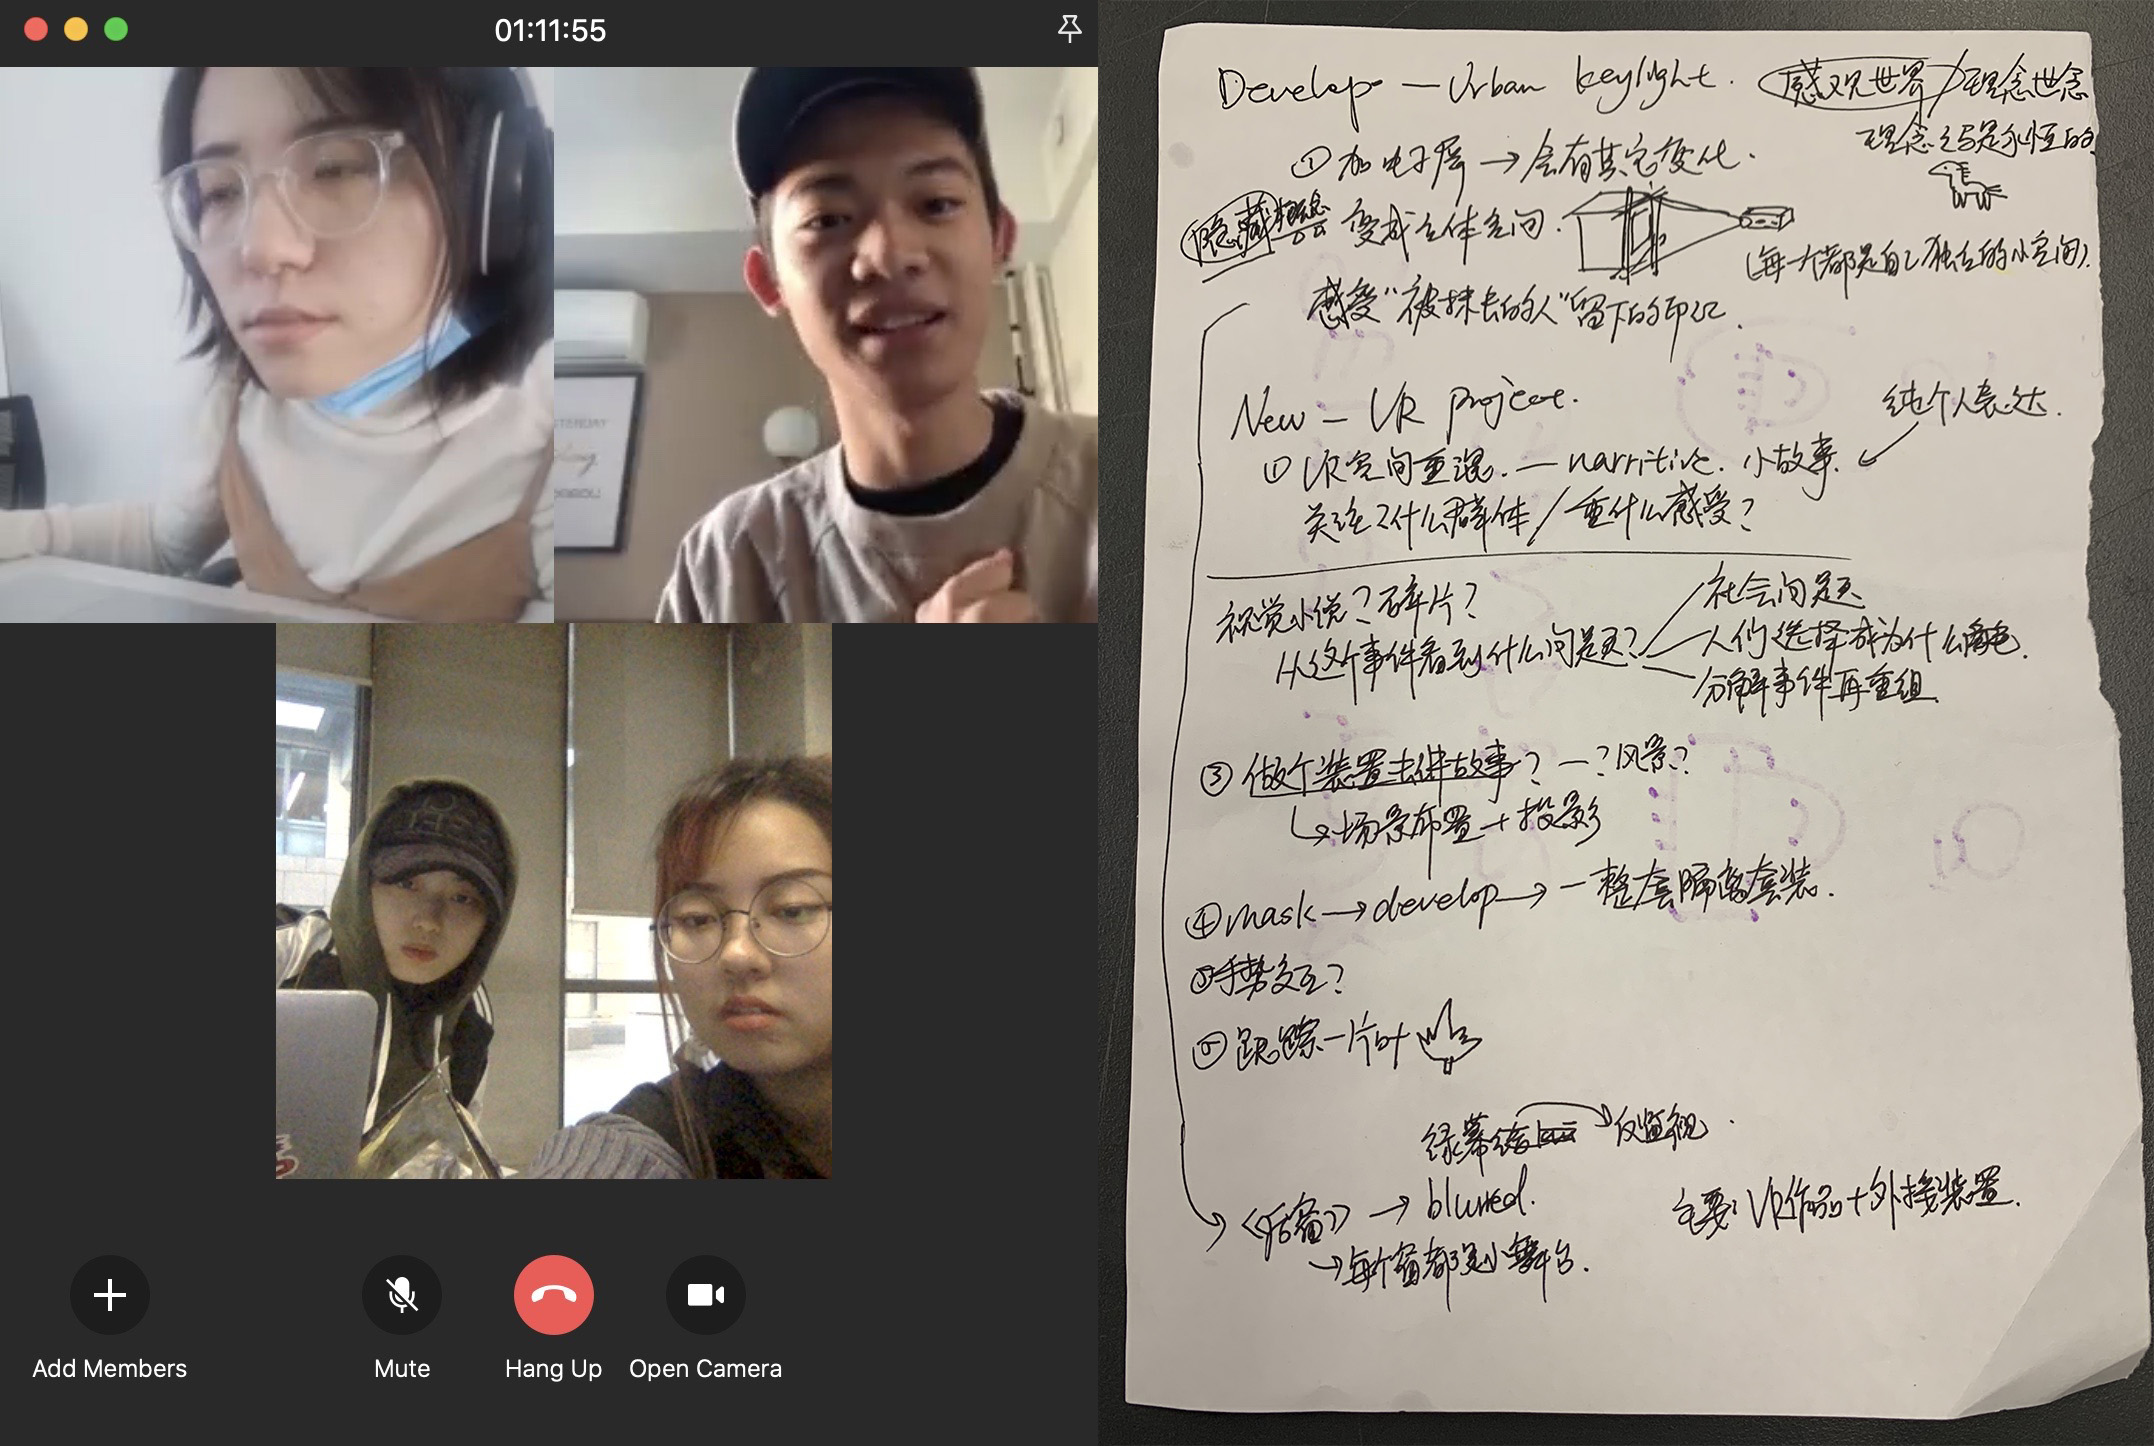 01:11:55
Add Members
Mute
Hang Up
Open Camera
Develop — Urban keylight.
感观世界/理念世念
理念之马是永恒的
① 加电子屏 → 会有其它变化.
隐藏 变成立体空间.
(每一个都是自己独立的小空间).
感受“被抹去的人”留下的印记.
New — VR project.
纯个人表达.
① VR空间重混. — narritive. 小故事.
关注什么群体/重什么感受?
视觉小说? 碎片?
从这个事件看到什么问题?
社会问题
人们选择成为什么角色.
分解事件再重组
③ 做个装置去件故事? —? 风景?
↳ 场景布置 + 投影
④ mask → develop → 一整套隔离套装.
手势交互?
⑤ 跟踪一片叶
绿幕 → 反监视.
《后窗》 → blurred.
→ 每个窗都是小舞台.
主要: VR作品 + 外接装置.